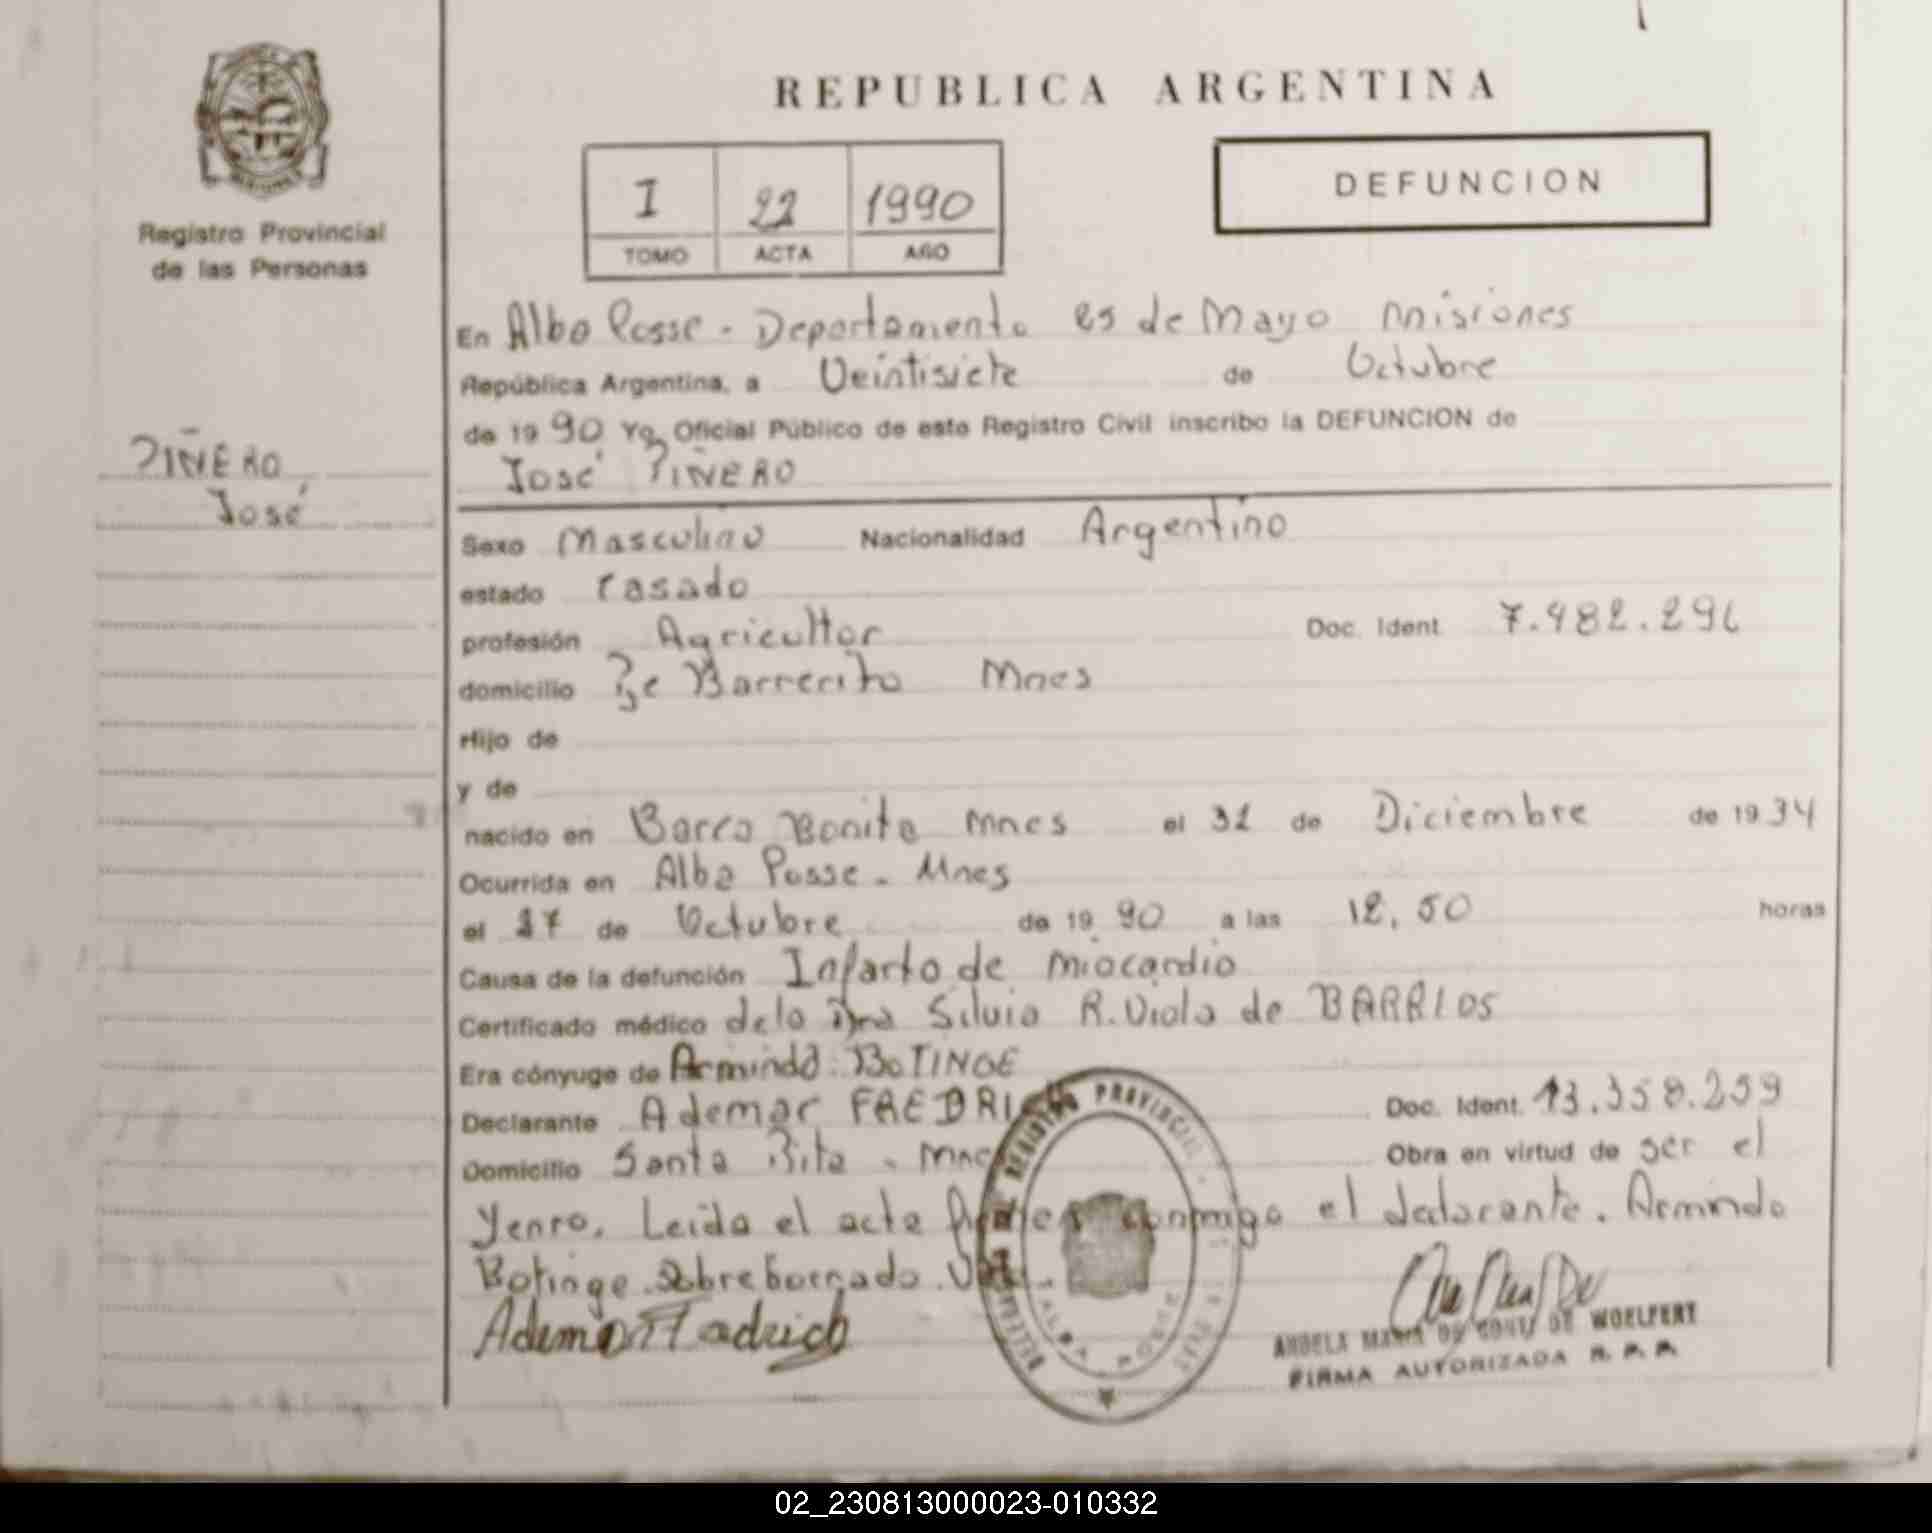 REPUBLICA ARGENTINA
DEFUNCION
I 22 1990
TOMO ACTA AÑO
Registro Provincial
de las Personas
PIÑERO
José
En Alba Posse - Departamento 25 de Mayo Misiones
República Argentina, a Veintisiete de Octubre
de 1990 Yo, Oficial Público de este Registro Civil inscribo la DEFUNCION de
José PIÑERO
Sexo Masculino Nacionalidad Argentino
estado Casado
profesión Agricultor Doc. Ident.
domicilio Barrerito Mnes
Hijo de
y de
nacido en Barra Bonita Mnes el 31 de Diciembre de 1934
Ocurrida en Alba Posse - Mnes
el 27 de Octubre de 1990 a las 12,50 horas
Causa de la defunción Infarto de miocardio
Certificado médico de la Dra Silvia R. Viola de BARRIOS
Era cónyuge de Arminda BOTINGE
Declarante Ademar Doc. Ident. 13.358.259
Domicilio Santa Rita - Obra en virtud de ser el
Yenro. Leída el acta conmigo el declarante. Arminda
Botinge. Sobreborrado.
REGISTRO PROVINCIAL
ALBA POSSE
ANGELA MARIA DE WOELFERT
FIRMA AUTORIZADA R. P. P.
02_230813000023-010332